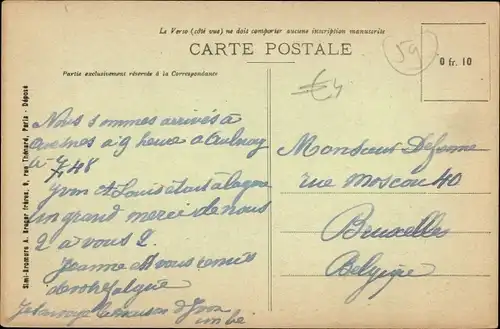 Le Verso (côté vue) ne doit comporter aucune inscription manuscrite
CARTE POSTALE
59
0 fr. 10
Partie exclusivement réservée à la Correspondance
€4
Simi-Aromure A. Breger frères, 9, rue Thénard, Paris - Déposé
Nous sommes arrivés à
avesnes a 9 heure a Aulnoy
a 7 48
Yvon et Louis était a la gare
un grand merci de nous
2 a vous 2.
Jeanne et vous
de votre
Je
Monsieur
rue Moscou 40
Bruxelles
Belgique